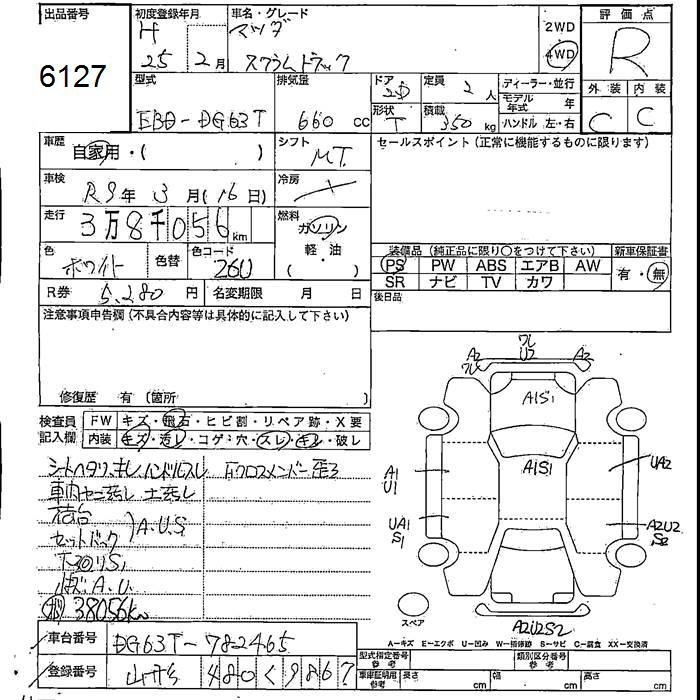 出品番号
6127
初度登録年月
H
25 2月
車名・グレード
マツダ
スクラムトラック
2WD
4WD
評価点
R
外装 内装
C C
型式
EBD-DG63T
排気量
660 cc
ドア
2D
形状
T
定員
2人
積載
350 kg
ディーラー・並行
モデル年式 年
ハンドル 左・右
車歴
自家用・( )
シフト
MT
セールスポイント(正常に機能するものに限ります)
車検
R9年 3月(16日)
冷房
走行
3万8千056km
燃料
ガソリン
軽・油
( )
色
ホワイト
色替
色コード
26U
装備品(純正品に限り〇をつけて下さい)
PS PW ABS エアB AW
SR ナビ TV カワ
新車保証書
有・無
R券 5,280円
名変期限 月 日
後日品
注意事項申告欄(不具合内容等は具体的に記入して下さい)
修復歴 有(箇所 )
検査員記入欄
FW キズ・飛石・ヒビ割・リペア跡・X要
内装 キズ・汚レ・コゲ・穴・スレ・キレ・破レ
シートヘタリ、キレ ハンドルスレ
車内ヤニ汚レ 土汚レ
荷台
セットバック
A.U.S
A.U.
38056km
ワレ
A2 U2 A2
ワレ
A1S1
A1S1
A1
U1
UA2
UA1
S1
A2U2
S2
スペア
A2U2S2
A-キズ E-エクボ U-凹み W-補修跡 S-サビ C-腐食 XX-交換済
車台番号
DG63T-782465
登録番号
山形 480 く 9867
型式指定番号
参考
類別区分番号
参考
車庫証明用
参考
長さ cm 幅 cm 高さ cm